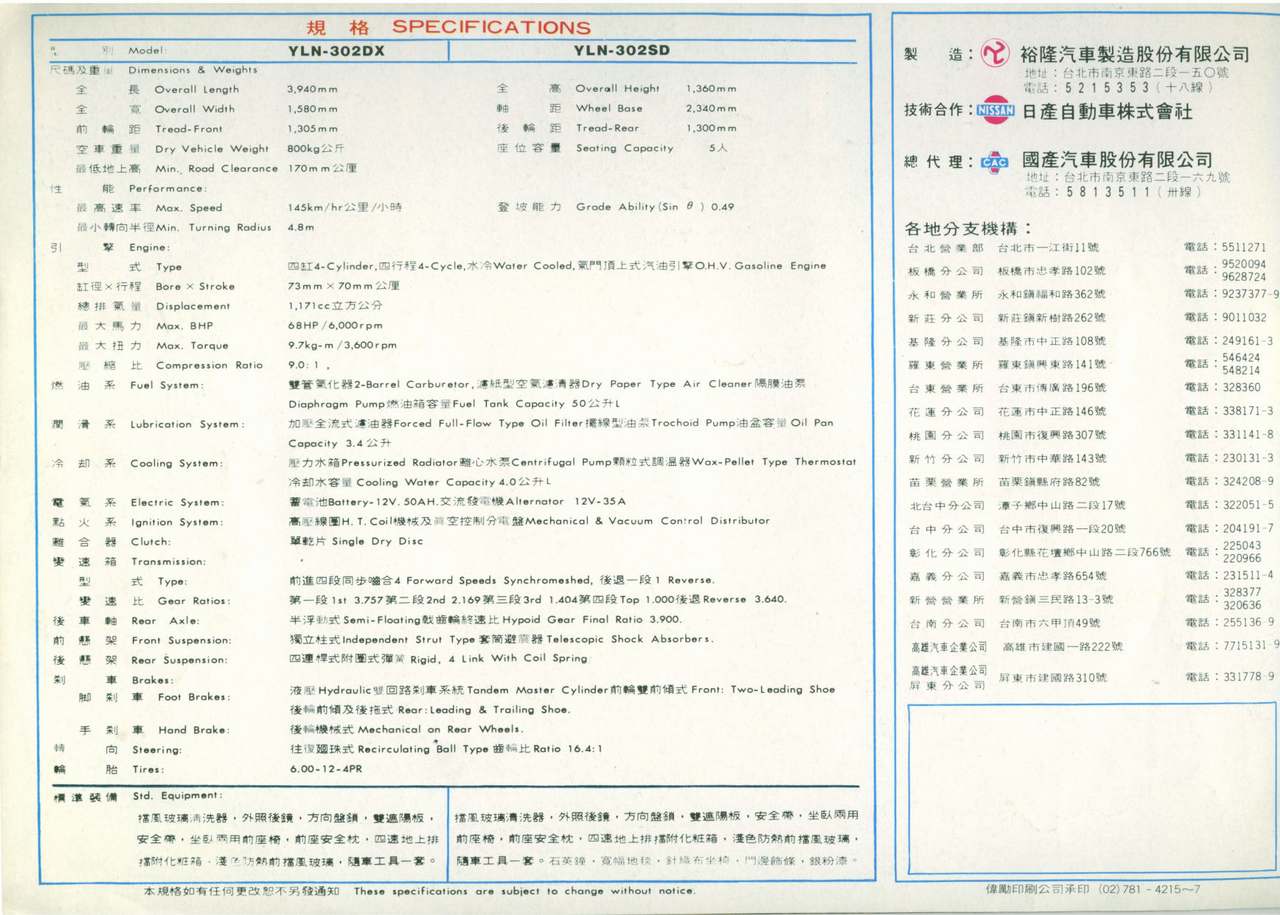 規格 SPECIFICATIONS
型 別 Model: YLN-302DX YLN-302SD
尺碼及重量 Dimensions & Weights
全 長 Overall Length 3,940mm 全 高 Overall Height 1,360mm
全 寬 Overall Width 1,580mm 軸 距 Wheel Base 2,340mm
前 輪 距 Tread-Front 1,305mm 後 輪 距 Tread-Rear 1,300mm
空車重量 Dry Vehicle Weight 800kg公斤 座位容量 Seating Capacity 5人
最低地上高 Min. Road Clearance 170mm公厘
性 能 Performance:
最高速率 Max. Speed 145km/hr公里/小時 登坡能力 Grade Ability(Sin θ) 0.49
最小轉向半徑Min. Turning Radius 4.8m
引 擎 Engine:
型 式 Type 四缸4-Cylinder,四行程4-Cycle,水冷Water Cooled,氣門頂上式汽油引擎O.H.V. Gasoline Engine
缸徑×行程 Bore × Stroke 73mm × 70mm公厘
總排氣量 Displacement 1,171cc立方公分
最大馬力 Max. BHP 68HP/6,000rpm
最大扭力 Max. Torque 9.7kg-m/3,600rpm
壓縮比 Compression Ratio 9.0:1
燃油系 Fuel System: 雙管氣化器2-Barrel Carburetor,濾紙型空氣濾清器Dry Paper Type Air Cleaner隔膜油泵
Diaphragm Pump燃油箱容量Fuel Tank Capacity 50公升L
潤滑系 Lubrication System: 加壓全流式濾油器Forced Full-Flow Type Oil Filter擺線型油泵Trochoid Pump油盆容量Oil Pan
Capacity 3.4公升
冷却系 Cooling System: 壓力水箱Pressurized Radiator離心水泵Centrifugal Pump顆粒式調溫器Wax-Pellet Type Thermostat
冷却水容量Cooling Water Capacity 4.0公升L
電氣系 Electric System: 蓄電池Battery-12V. 50AH.交流發電機Alternator 12V-35A
點火系 Ignition System: 高壓線圈H.T. Coil機械及真空控制分電盤Mechanical & Vacuum Control Distributor
離合器 Clutch: 單乾片 Single Dry Disc
變速箱 Transmission:
型 式 Type: 前進四段同步嚙合4 Forward Speeds Synchromeshed, 後退一段1 Reverse.
變速比 Gear Ratios: 第一段1st 3.757第二段2nd 2.169第三段3rd 1.404第四段Top 1.000後退Reverse 3.640.
後車軸 Rear Axle: 半浮動式Semi-Floating戟齒輪終速比Hypoid Gear Final Ratio 3.900.
前懸架 Front Suspension: 獨立柱式Independent Strut Type套筒避震器Telescopic Shock Absorbers.
後懸架 Rear Suspension: 四連桿式附圈式彈簧Rigid, 4 Link With Coil Spring
刹 車 Brakes:
脚刹車 Foot Brakes: 液壓Hydraulic雙回路刹車系統Tandem Master Cylinder前輪雙前傾式Front: Two-Leading Shoe
後輪前傾及後拖式Rear:Leading & Trailing Shoe.
手刹車 Hand Brake: 後輪機械式Mechanical on Rear Wheels.
轉 向 Steering: 往復循珠式Recirculating Ball Type齒輪比Ratio 16.4:1
輪 胎 Tires: 6.00-12-4PR
標準裝備 Std. Equipment:
擋風玻璃清洗器，外照後鏡，方向盤鎖，雙遮陽板，
安全帶，坐臥兩用前座椅，前座安全枕，四速地上排
擋附化粧箱，淺色防熱前擋風玻璃，隨車工具一套。
擋風玻璃清洗器，外照後鏡，方向盤鎖，雙遮陽板，安全帶，坐臥兩用
前座椅，前座安全枕，四速地上排擋附化粧箱，淺色防熱前擋風玻璃，
隨車工具一套。石英鐘，寬幅地毯，針織布坐椅，門邊飾條，銀粉漆。
本規格如有任何更改恕不另發通知 These specifications are subject to change without notice.
製 造： 裕隆汽車製造股份有限公司
地址：台北市南京東路二段一五〇號
電話：5215353（十八線）
技術合作： NISSAN 日產自動車株式會社
總代理： CAC 國產汽車股份有限公司
地址：台北市南京東路二段一六九號
電話：5813511（卅線）
各地分支機構：
台北營業部 台北市一江街11號 電話：5511271
板橋分公司 板橋市忠孝路102號 電話：9520094
9628724
永和營業所 永和鎮福和路362號 電話：9237377-9
新莊分公司 新莊鎮新樹路262號 電話：9011032
基隆分公司 基隆市中正路108號 電話：249161-3
羅東營業所 羅東鎮興東路141號 電話：546424
548214
台東營業所 台東市傳廣路196號 電話：328360
花蓮分公司 花蓮市中正路146號 電話：338171-3
桃園分公司 桃園市復興路307號 電話：331141-8
新竹分公司 新竹市中華路143號 電話：230131-3
苗栗營業所 苗栗鎮縣府路82號 電話：324208-9
北台中分公司 潭子鄉中山路二段17號 電話：322051-5
台中分公司 台中市復興路一段20號 電話：204191-7
彰化分公司 彰化縣花壇鄉中山路二段766號 電話：225043
220966
嘉義分公司 嘉義市忠孝路654號 電話：231511-4
新營營業所 新營鎮三民路13-3號 電話：328377
320636
台南分公司 台南市六甲頂49號 電話：255136-9
高雄汽車企業公司 高雄市建國一路222號 電話：7715131-9
高雄汽車企業公司
屏東分公司 屏東市建國路310號 電話：331778-9
偉勵印刷公司承印 (02)781-4215～7